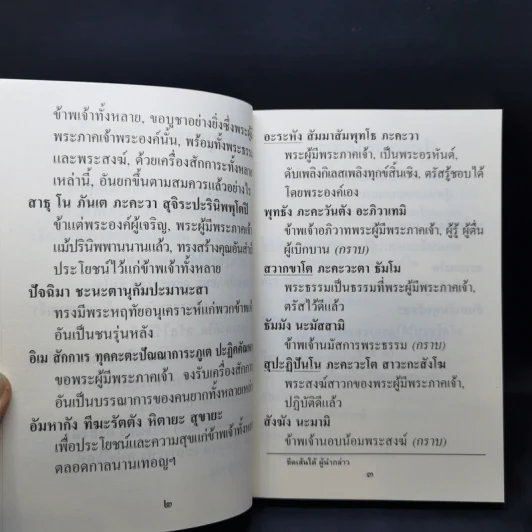 ข้าพเจ้าทั้งหลาย, ขอบูชาอย่างยิ่งซึ่งพระผู้มี
พระภาคเจ้าพระองค์นั้น, พร้อมทั้งพระธรรม
และพระสงฆ์, ด้วยเครื่องสักการะทั้งหลาย
เหล่านี้, อันยกขึ้นตามสมควรแล้วอย่างไร
สาธุ โน ภันเต ภะคะวา สุจิระปะรินิพพุโตปิ
ข้าแต่พระองค์ผู้เจริญ, พระผู้มีพระภาคเจ้า
แม้ปรินิพพานนานแล้ว, ทรงสร้างคุณอันสำเร็จ
ประโยชน์ไว้แก่ข้าพเจ้าทั้งหลาย
ปัจฉิมา ชะนะตานุกัมปะมานะสา
ทรงมีพระหฤทัยอนุเคราะห์แก่พวกข้าพเจ้า
อันเป็นชนรุ่นหลัง
อิเม สักกาเร ทุคคะตะปัณณาการะภูเต ปะฏิคคัณหาตุ
ขอพระผู้มีพระภาคเจ้า จงรับเครื่องสักการะ
อันเป็นบรรณาการของคนยากทั้งหลายเหล่านี้
อัมหากัง ทีฆะรัตตัง หิตายะ สุขายะ
เพื่อประโยชน์และความสุขแก่ข้าพเจ้าทั้งหลาย
ตลอดกาลนานเทอญฯ
๒
อะระหัง สัมมาสัมพุทโธ ภะคะวา
พระผู้มีพระภาคเจ้า, เป็นพระอรหันต์,
ดับเพลิงกิเลสเพลิงทุกข์สิ้นเชิง, ตรัสรู้ชอบได้
โดยพระองค์เอง
พุทธัง ภะคะวันตัง อะภิวาเทมิ
ข้าพเจ้าอภิวาทพระผู้มีพระภาคเจ้า, ผู้รู้ ผู้ตื่น
ผู้เบิกบาน (กราบ)
สวากขาโต ภะคะวะตา ธัมโม
พระธรรมเป็นธรรมที่พระผู้มีพระภาคเจ้า,
ตรัสไว้ดีแล้ว
ธัมมัง นะมัสสามิ
ข้าพเจ้านมัสการพระธรรม (กราบ)
สุปะฏิปันโน ภะคะวะโต สาวะกะสังโฆ
พระสงฆ์สาวกของพระผู้มีพระภาคเจ้า,
ปฏิบัติดีแล้ว
สังฆัง นะมามิ
ข้าพเจ้านอบน้อมพระสงฆ์ (กราบ)
ขีดเส้นใต้ ผู้นำกล่าว
๓